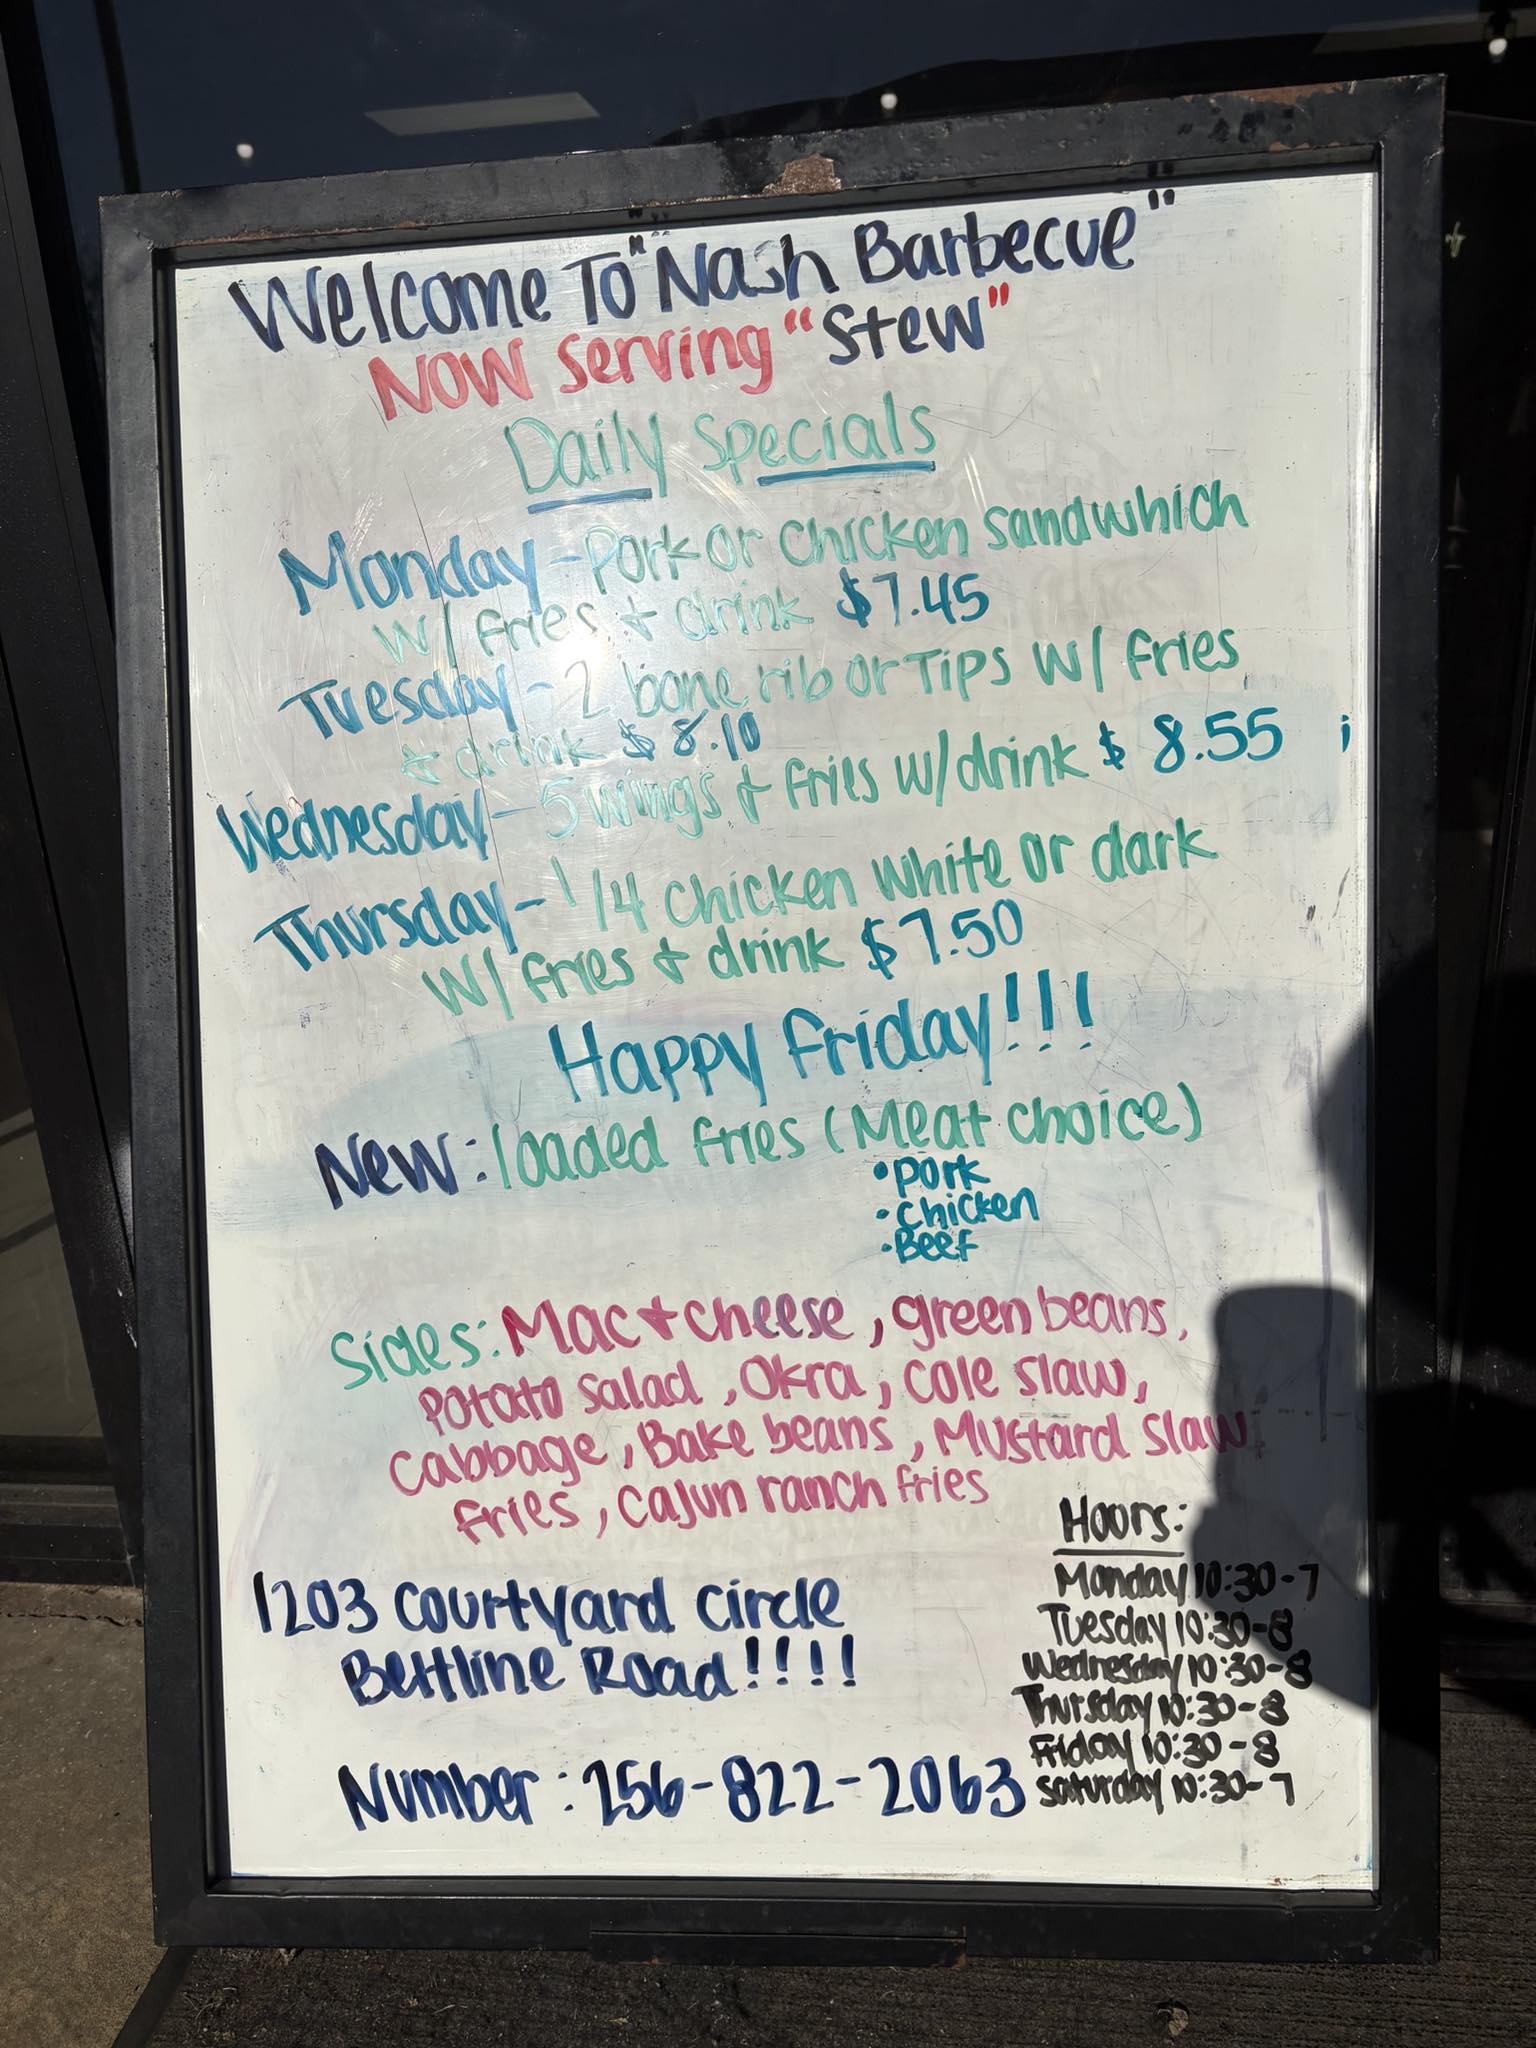 Welcome To "Nash Barbecue"
NOW serving "Stew"
Daily Specials
Monday - Pork or Chicken Sandwhich
w/ fries + drink $7.45
Tuesday - 2 bone rib or Tips w/ fries
& drink $8.10
Wednesday - 5 wings & fries w/ drink $8.55
Thursday - 1/4 chicken white or dark
w/ fries & drink $7.50
Happy Friday!!!
New: loaded fries (Meat choice)
• Pork
• chicken
• Beef
Sides: Mac + cheese, green beans,
Potato salad, Okra, cole slaw,
Cabbage, Bake beans, Mustard slaw
fries, cajun ranch fries
Hours:
Monday 10:30-7
Tuesday 10:30-8
Wednesday 10:30-8
Thursday 10:30-8
Friday 10:30-8
Saturday 10:30-7
1203 Courtyard Circle
Beltline Road!!!!
Number: 256-822-2063